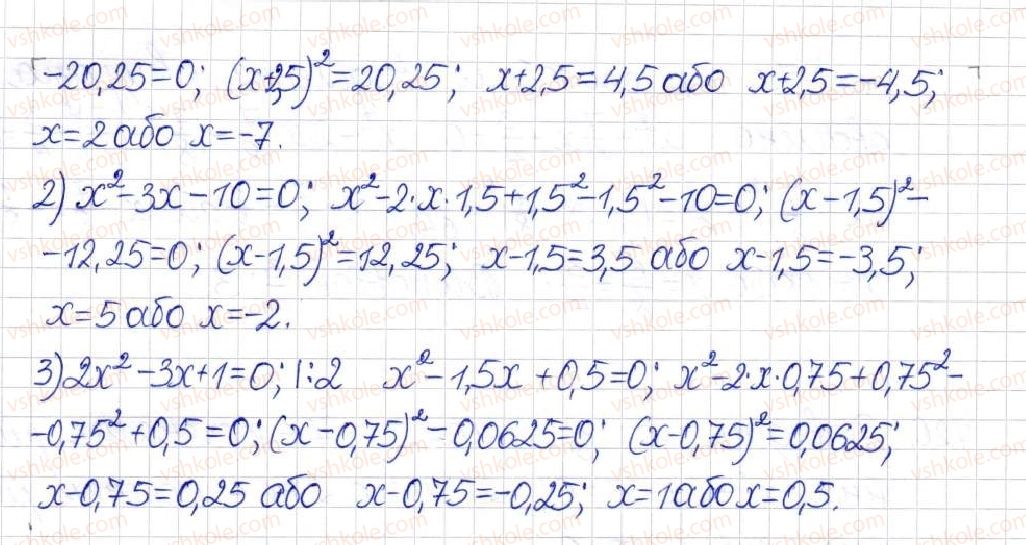 -20,25=0; (x+2,5)²=20,25; x+2,5=4,5 або x+2,5=-4,5;
x=2 або x=-7.
2) x²-3x-10=0; x²-2·x·1,5+1,5²-1,5²-10=0; (x-1,5)²-
-12,25=0; (x-1,5)²=12,25; x-1,5=3,5 або x-1,5=-3,5;
x=5 або x=-2.
3) 2x²-3x+1=0; |:2 x²-1,5x+0,5=0; x²-2·x·0,75+0,75²-
-0,75²+0,5=0; (x-0,75)²-0,0625=0; (x-0,75)²=0,0625;
x-0,75=0,25 або x-0,75=-0,25; x=1 або x=0,5.